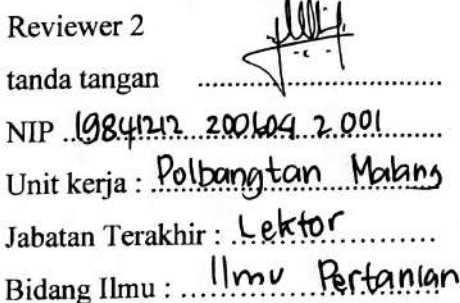 Reviewer 2
tanda tangan ........................
NIP 19841212 200604 2 001
Unit kerja : Polbangtan Malang
Jabatan Terakhir : Lektor
Bidang Ilmu : Ilmu Pertanian